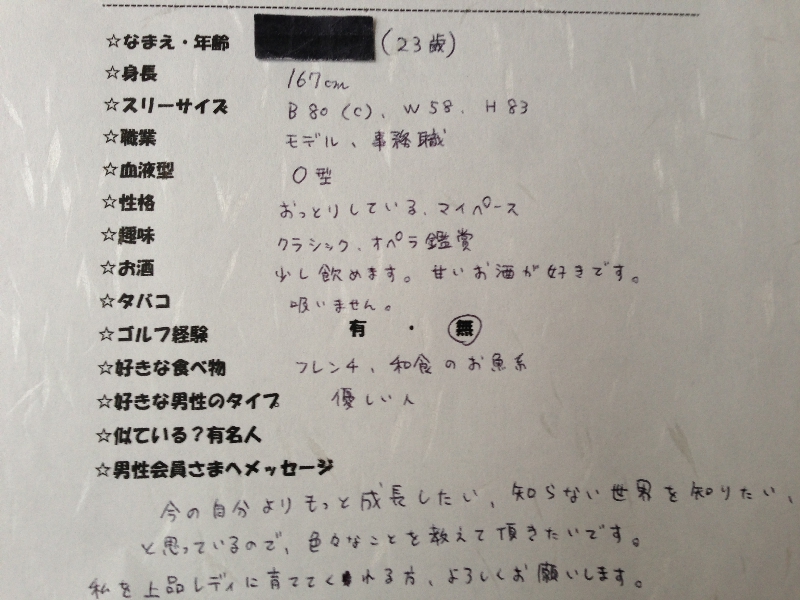 ☆なまえ・年齢 (23歳)
☆身長 167cm
☆スリーサイズ B 80 (C)、W 58、H 83
☆職業 モデル、事務職
☆血液型 O型
☆性格 おっとりしている、マイペース
☆趣味 クラシック、オペラ鑑賞
☆お酒 少し飲めます。甘いお酒が好きです。
☆タバコ 吸いません。
☆ゴルフ経験 有・無
☆好きな食べ物 フレンチ、和食のお魚系
☆好きな男性のタイプ 優しい人
☆似ている?有名人
☆男性会員さまへメッセージ
今の自分よりもっと成長したい、知らない世界を知りたい、
と思っているので、色々なことを教えて頂きたいです。
私を上品レディに育ててくれる方、よろしくお願いします。